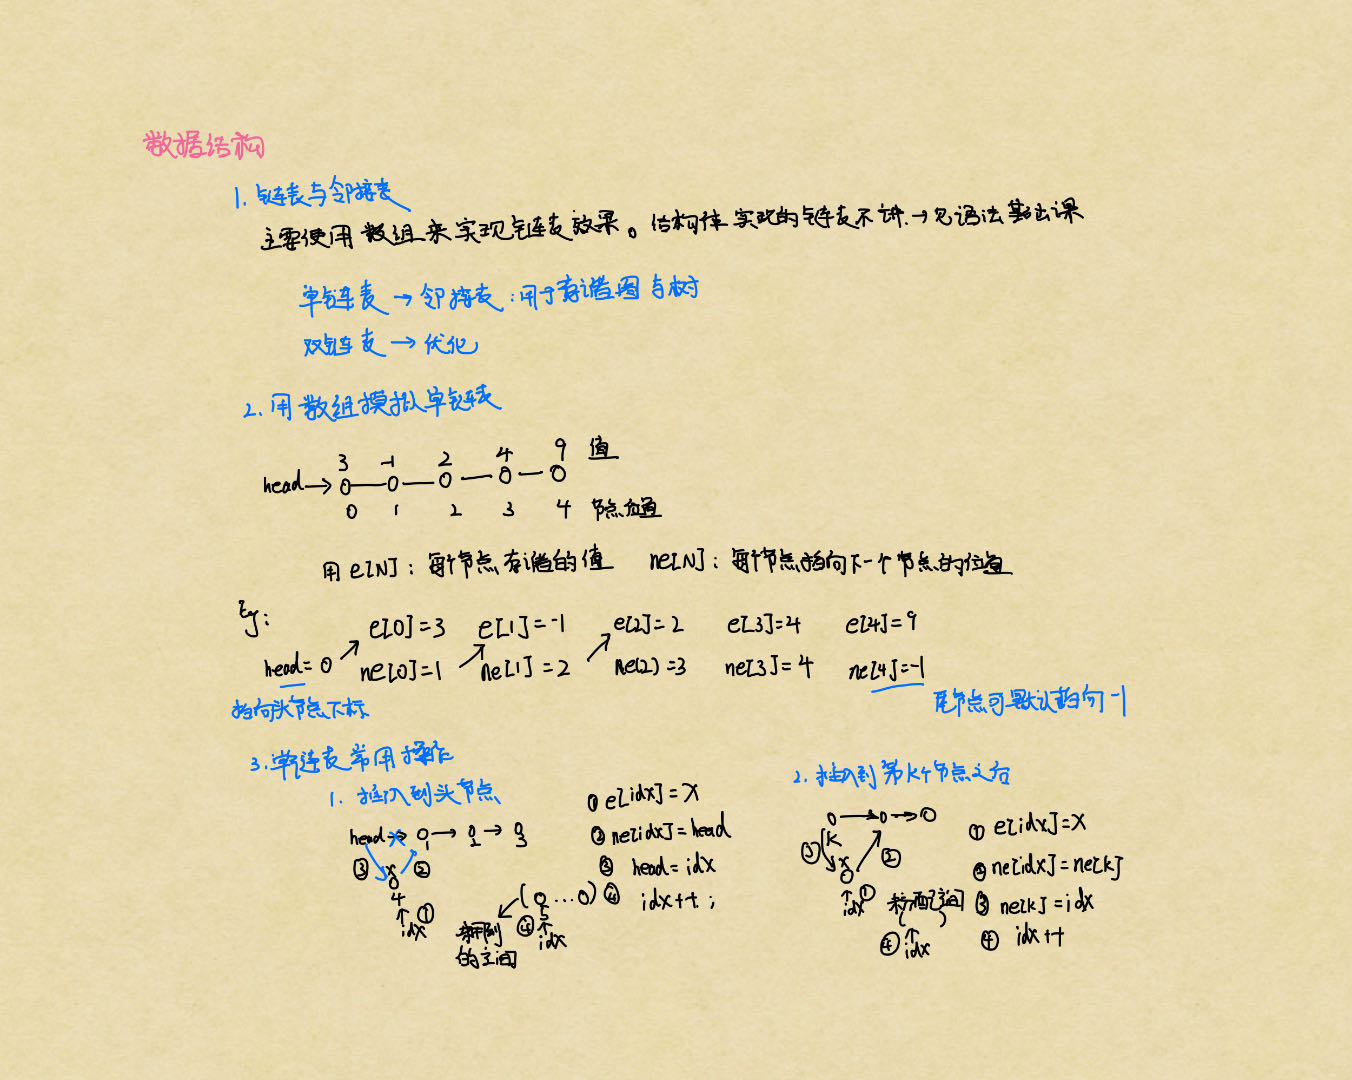 数据结构
1. 链表与邻接表
主要使用数组来实现链表效果。结构体实现的链表不讲.→见语法基础课
单链表 → 邻接表:用于存储图与树
双链表 → 优化
2. 用数组模拟单链表
3 -1 2 4 9 值
head→ 0 — 0 — 0 — 0 — 0
0 1 2 3 4 节点位置
用 e[N]: 每个节点存储的值 ne[N]: 每个节点指向下一个节点的位置
Eg:
e[0]=3 e[1]=-1 e[2]=2 e[3]=4 e[4]=9
head=0 ne[0]=1 ne[1]=2 ne(2)=3 ne[3]=4 ne[4]=-1
指向头节点下标
尾节点可默认指向 -1
3. 单链表常用操作
1. 插入到头节点
head → 0 → 0 → 0
1 2 3
③ x ②
0
4
↑ ①
idx
(0 ...0)
5
④ ↑
idx
的空间
① e[idx]=x
② ne[idx]=head
③ head=idx
④ idx++;
2. 插入到第k个节点之后
0 → 0 → 0
k
③ x ②
0
↑ ①
idx
( )
④ ↑
idx
① e[idx]=x
② ne[idx]=ne[k]
③ ne[k]=idx
④ idx++